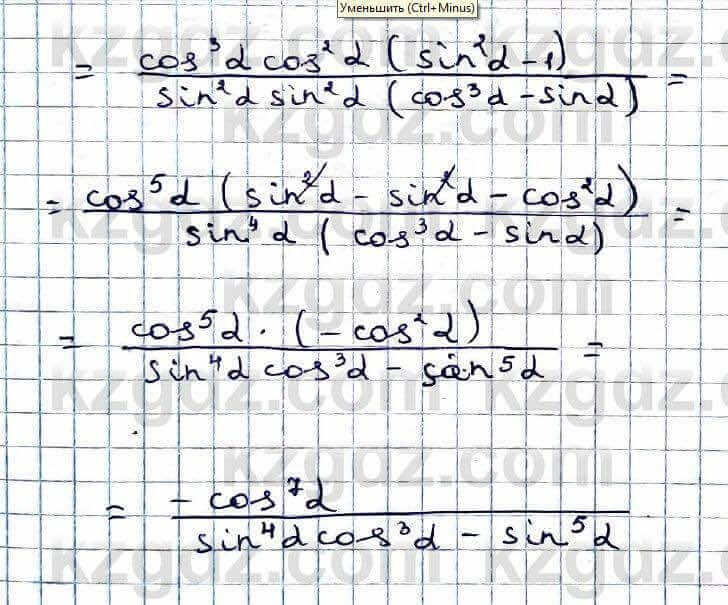 Уменьшить (Ctrl+Minus)
= cos³α cos²α (sin²α - 1) / sin²α sin²α (cos³α - sinα) =
= cos⁵α (sin²α - sin²α - cos²α) / sin⁴α (cos³α - sinα) =
= cos⁵α · (- cos²α) / sin⁴α cos³α - sin⁵α =
= - cos⁷α / sin⁴α cos³α - sin⁵α
kzgdz.com